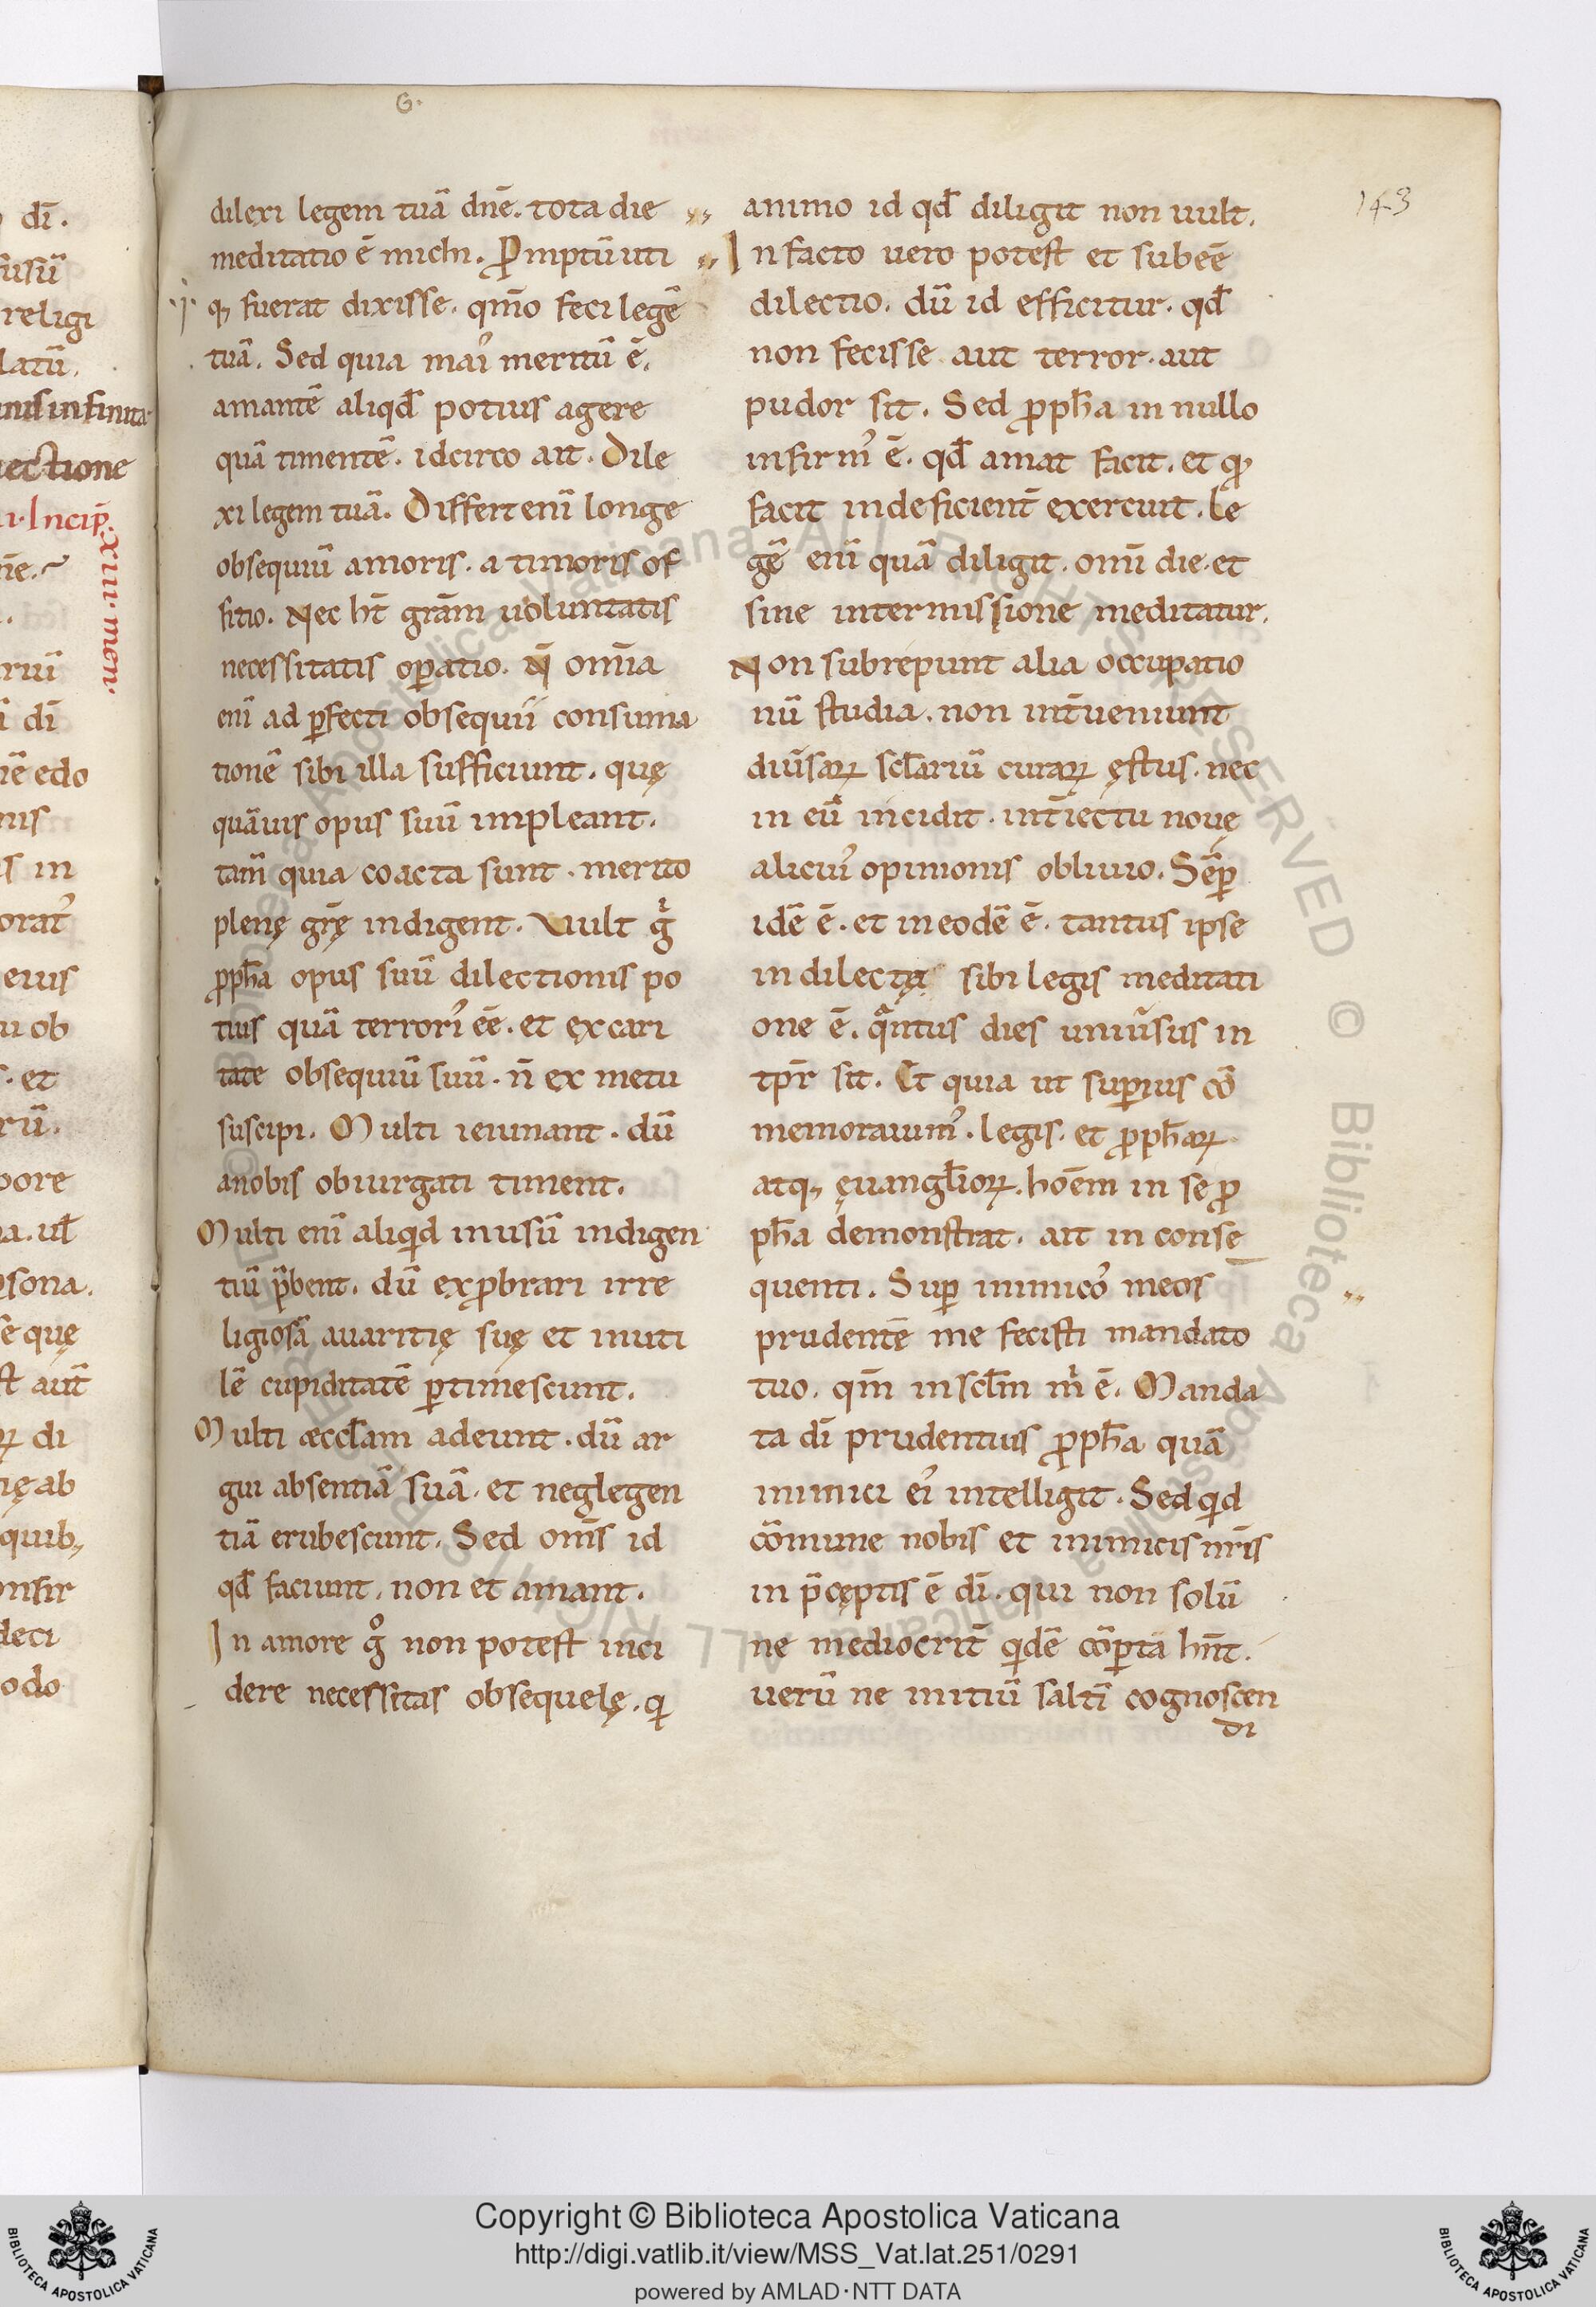 G.
143
dilexi legem tuā dnē. tota die
meditatio ē michi. Pmptū uti
q; fuerat dixisse. qm̄o feci legē
tuā. Sed quia mai᾿ meritū ē.
amantē aliqd̄ potius agere
quā timentē. idcirco ait. Dile
xi legem tuā. Differt enī longe
obsequiū amoris. a timoris of
fitio. Nec ht̄ grām uoluntatis
necessitatis opatio. N̄ om̄ia
enī ad pfecti obsequii consuma
tionē sibi illa sufficiunt. quę
quāuis opus suū impleant.
tam̄ quia coacta sunt. merito
plenę grę̄ indigent. Uult g̓
pph̄a opus suū dilectionis po
tius quā terrori᾿ eē. et ex cari
tate obsequiū suū. n̄ ex metu
suscipi. Multi ieiunant. dū
anobis obiurgati timent.
Multi enī aliqid inusū indigen
tiū p̄bent. dū expbrari irre
ligiosā auaritię suę et inuti
lē cupiditatē ptimescunt.
Multi æccl̄am adeunt. dū ar
gui absentiā suā. et neglegen
tiā erubescunt. Sed om̄s id
qd̄ faciunt. non et amant.
In amore g̊ non potest inci
dere necessitas obsequelę. qi
animo id qd̄ diligit non uult.
In facto uero potest et subeē
dilectio. dū id efficitur. qd̄
non fecisse aut terror. aut
pudor sit. Sed pph̄a in nullo
infirm᾿ ē. qd̄ amat facit. et q
facit indeficient̄ exercuit. Le
gē enī quā diligit. omī die. et
sine intermissione meditatur.
Non subrepunt alia occupatio
nū studia. non int̄ueniunt
diūsaꝝ scl̄ariū curaꝝ ęstus. nec
in eū incidit. int̄iectu nouę
alicui᾿ opinionis obliuio. Sēp
idē ē. et in eodē ē. tantus ipse
in dilectę sibi legis meditati
one ē. qantus dies uniūsus in
tpr̄ sit. Et quia ut superius cō
memorauim᾿. legis. et pph̄aꝝ
atq; ęuangl̄ioꝝ. hoēm in se p
ph̄a demonstrat. ait in conse
quenti. Sup inimico᾿ meos
prudentē me fecisti mandato
tuo. qm̄ in scl̄m m̓ ē. Manda
ta dī prudentius pph̄a quā
inimici ei᾿ intelligit. Sed qid
cōmune nobis et inimicis nr̄is
in p̄cęptis ē dī. qui non solū
ne mediocrit̄ qidē cōpta hn̄t.
uerū ne initiū saltī cognoscen
di
Copyright © Biblioteca Apostolica Vaticana
http://digi.vatlib.it/view/MSS_Vat.lat.251/0291
powered by AMLAD·NTT DATA